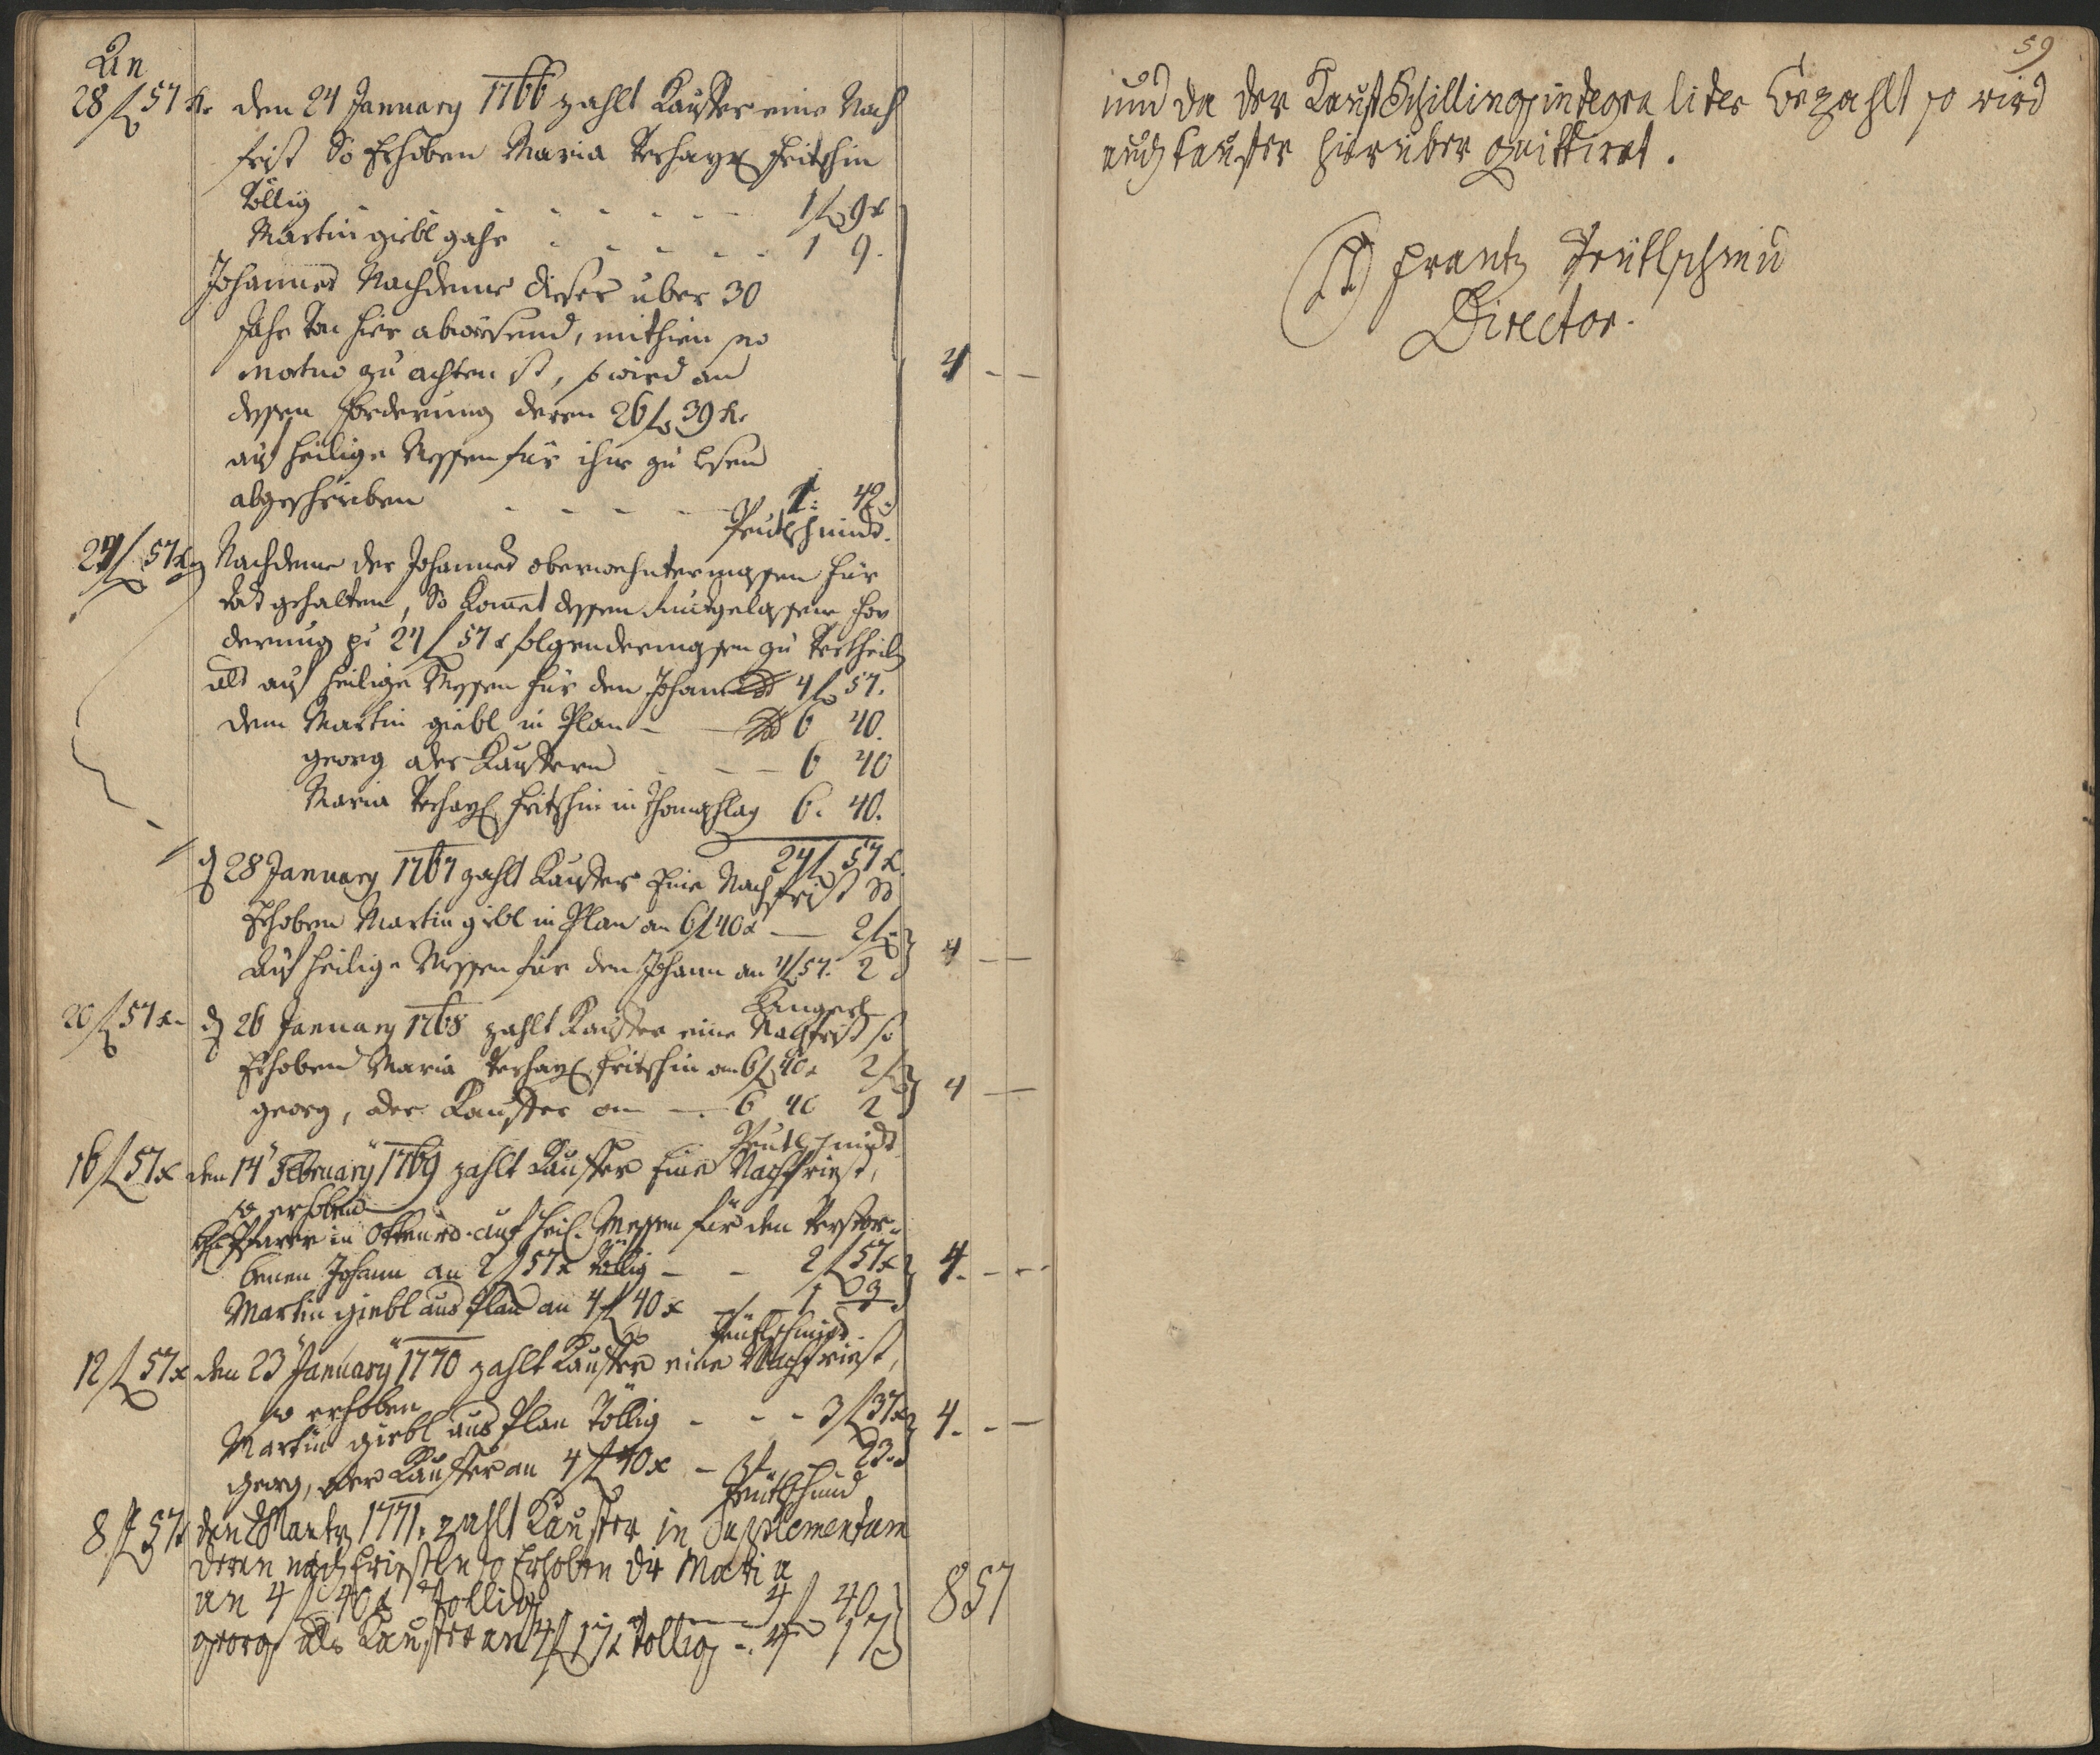 An
28 f 57 kr den 24 January 1766 zahlt Kauffer eine Nach
frist So Erhoben Maria Verhayr Fritschin
Völlig - - - - - - - 1 f 9 x
Martin giebl gahr - - - - - 1 9.
Johannes Nachdeme dieser über 30
Jahr von hier abwesend, mithin pro
mortuo zu achten ist, so wird an
dessen Forderung deren 26 f 39 kr
auf heilige Messen für ihm zu lesen
abgeschrieben - - - - - 1: 42.
4 - -
Peutlschmidt.
24 f 57 kr Nachdeme der Johannes oberwehntermassen für
todt gehalten, So komet dessen Ruckgelassene For
derung per 24 f 57 x folgendermassen zu vertheilen
als auf heilige Messen für den Johann 4 f 57.
dem Martin giebl in Plan - - 6 40.
georg der Kauffern - - - 6 40
Maria Verhayr Fritschin in Thomaschlag 6. 40.
24 f 57 x.
d 28 January 1767 zahlt Kauffer Eine Nachfrist So
Erhoben Martin giebl in Plan an 6 f 40 x — 2 f
Auf heilige Messen für den Johann an 4 f 57. 2
4 - -
20 f 57 kr d 26 January 1768 zahlt Kauffer eine Nachfrist so
Erhoben Maria Verhayr Fritschin an 6 f 40 x 2 f
georg, der Kauffer an — 6 40 2
4 -
Peutlschmidt
16 f 57 x den 14 February 1769 zahlt Kauffer Eine Nachfriest,
so erhoben
H Pfarrer in Ottenrd auf heil. Messen für den Verstor-
benen Johann an 2 f 57 x völlig - - 2 f 57 x
Martin giebl aus Plan an 4 f 40 x - 1 3
4. - -
Peutlschmidt.
12 f 57 x den 23 January 1770 zahlt Kauffer eine Nachfriest,
so erhoben
Martin giebl aus Plan Völlig - - - 3 f 37 x
georg, der Kauffer an 4 f 40 x - - 23.
4. - -
Peutlschmid
8 f 57 x den Martz 1771. zahlt Kauffer in Suplementum
deren nach Friesten so Erhoben die Maria
an 4 f 40 x Vollig 4 f 40
georg als Kauffer an 4 f 17 x Vollig - 4 17
8 57
59
und da der Kauf Schilling integraliter bezahlt so wird
auch Kauffer hierüber quittiret.
Frantz Peutlschmid
Director.